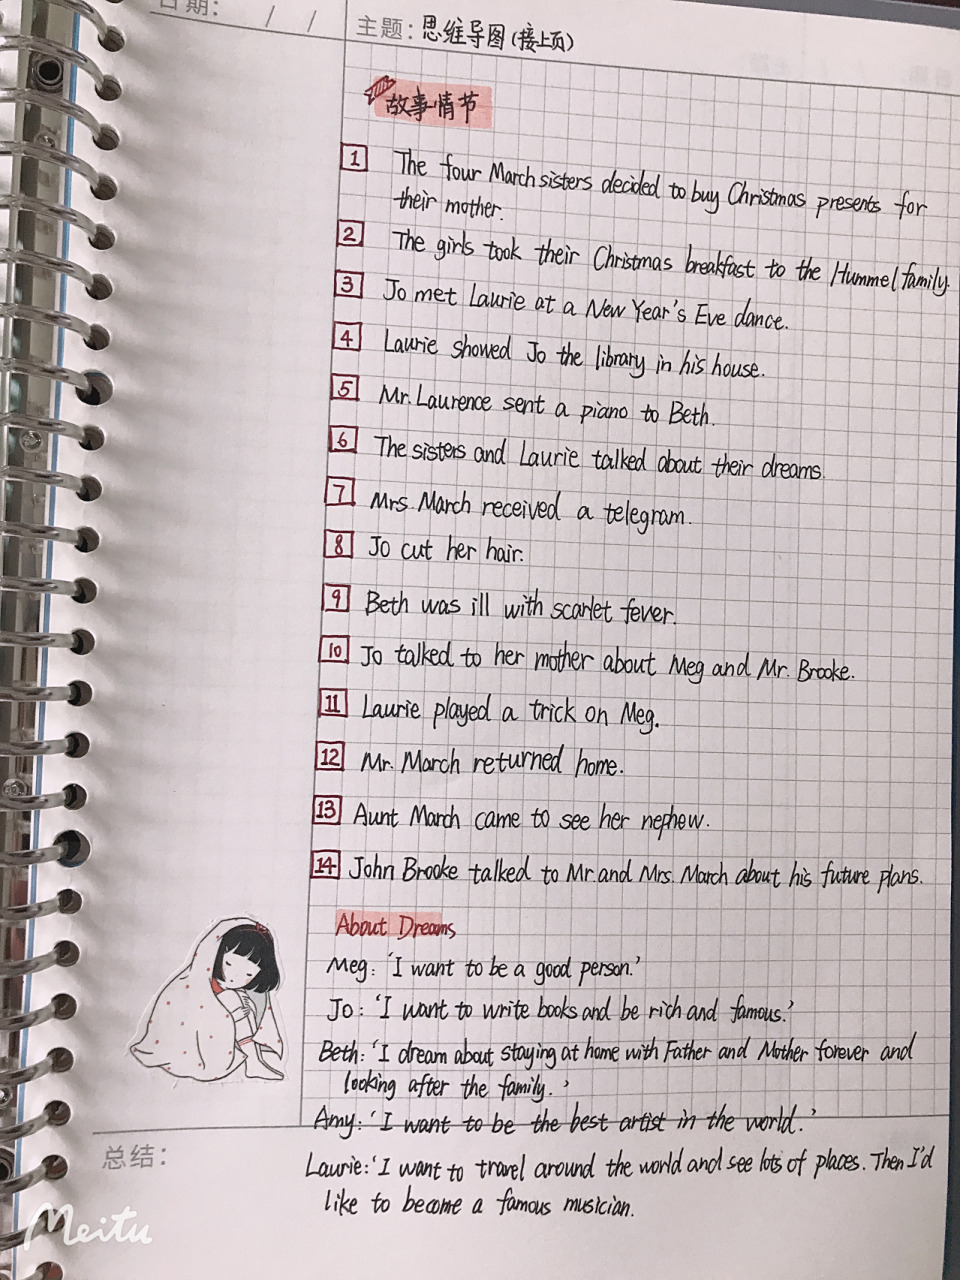 日期: / /
主题: 思维导图(接上页)
故事情节
1 The four March sisters decided to buy Christmas presents for
their mother.
2 The girls took their Christmas breakfast to the Hummel family.
3 Jo met Laurie at a New Year's Eve dance.
4 Laurie showed Jo the library in his house.
5 Mr. Laurence sent a piano to Beth.
6 The sisters and Laurie talked about their dreams.
7 Mrs. March received a telegram.
8 Jo cut her hair.
9 Beth was ill with scarlet fever.
10 Jo talked to her mother about Meg and Mr. Brooke.
11 Laurie played a trick on Meg.
12 Mr. March returned home.
13 Aunt March came to see her nephew.
14 John Brooke talked to Mr. and Mrs. March about his future plans.
About Dreams
Meg: 'I want to be a good person.'
Jo: 'I want to write books and be rich and famous.'
Beth: 'I dream about staying at home with Father and Mother forever and
looking after the family.'
Amy: 'I want to be the best artist in the world.'
总结:
Laurie: 'I want to travel around the world and see lots of places. Then I'd
like to become a famous musician.
Meitu